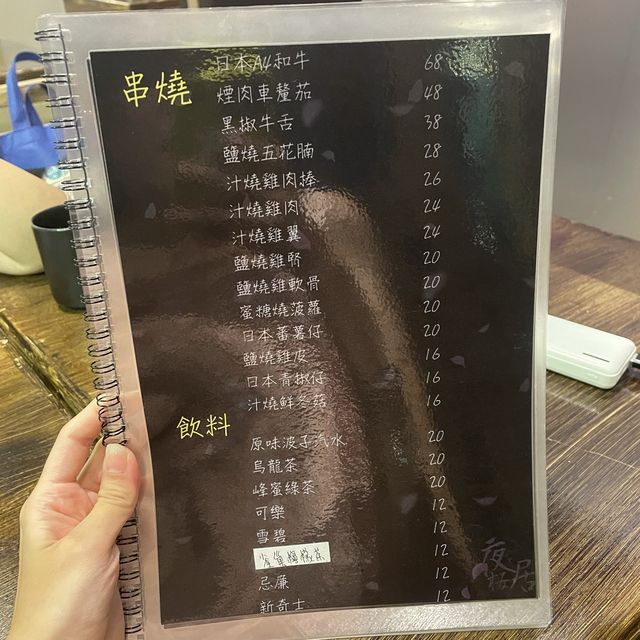 串燒
日本A4和牛 68
煙肉車釐茄 48
黑椒牛舌 38
鹽燒五花腩 28
汁燒雞肉捧 26
汁燒雞肉 24
汁燒雞翼 24
鹽燒雞腎 20
鹽燒雞軟骨 20
蜜糖燒菠蘿 20
日本蕃薯仔 20
鹽燒雞皮 16
日本青椒仔 16
汁燒鮮冬菇 16
飲料
原味波子汽水 20
烏龍茶 20
蜂蜜綠茶 20
可樂 12
雪碧 12
12
忌廉 12
新奇士 12
夜 居